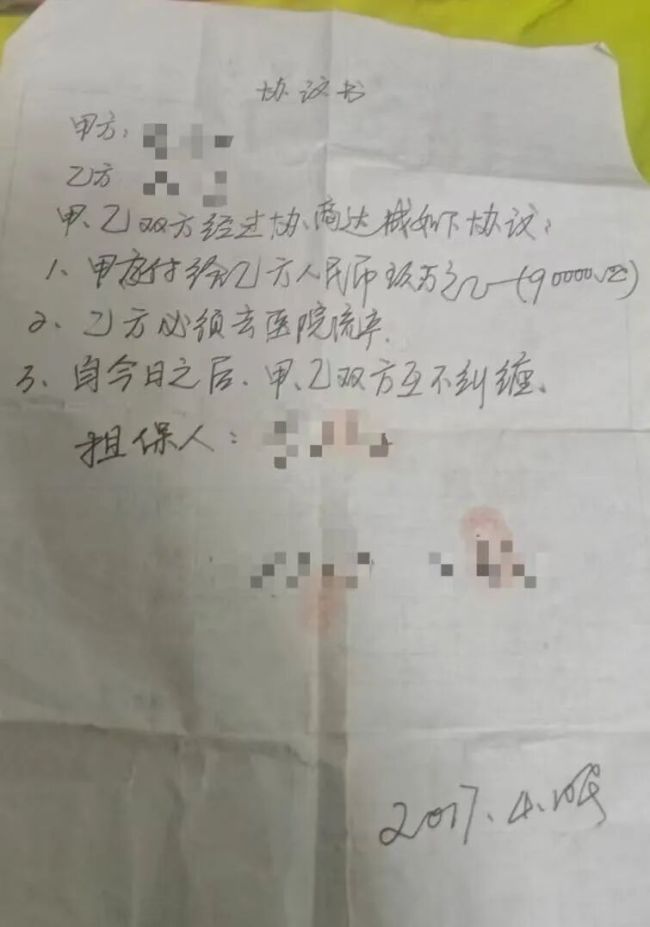 协议书
甲方：
乙方
甲、乙双方经过协商达成如下协议：
1、甲方付给乙方人民币玖万元(90000元)
2、乙方必须去医院流产.
3、自今日之后.甲、乙双方互不纠缠、
担保人：
2017.4.